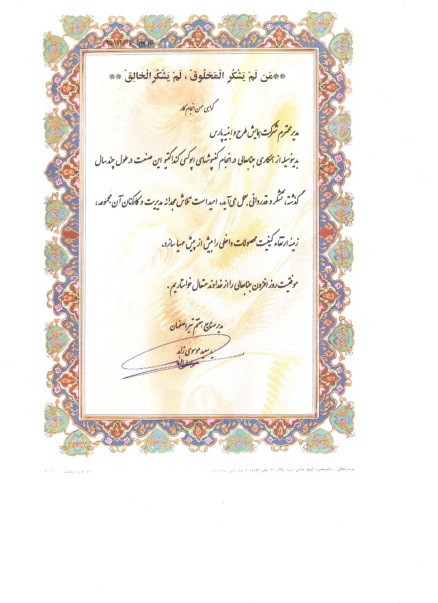 ** مَن لَمْ یَشْکُرِ الْمَخْلُوقَ ، لَمْ یَشْکُرِ الْخَالِقَ **
گواهی حسن انجام کار
مدیر محترم شرکت همایش طرح و ابنیه پارس
بدینوسیله از همکاری جنابعالی در انجام کفپوشهای اپوکسی کنداکتیو این صنعت در طول چند سال
گذشته، تشکر و قدردانی بعمل می‌آید، امید است تلاش مجدانه مدیریت و کارکنان آن مجموعه،
زمینه ارتقاء کیفیت محصولات داخلی را بیش از پیش مهیا سازد.
موفقیت روز افزون جنابعالی را از خداوند متعال خواستاریم.
مدیر صنایع هشتم تیر اصفهان
سید سعید موسوی زاهد